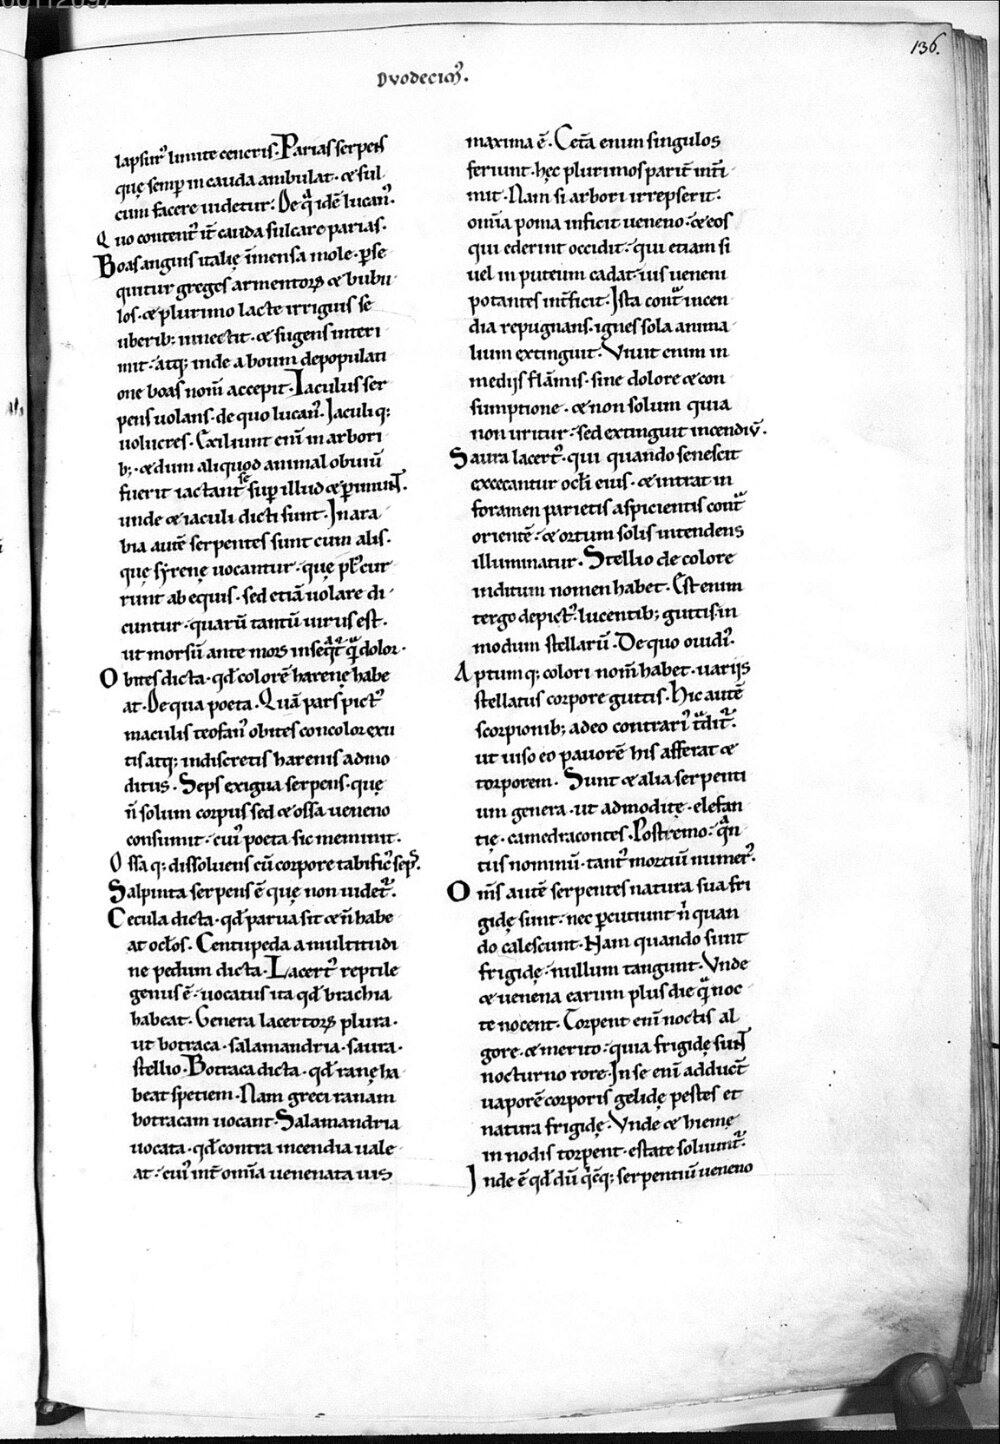 136.
Duodecim᷒.
lapsur᷒ limite cencris. Parias serpens
quę semp̱ in cauda ambulat. & sul
cum facere uidetur. De qͣ idē lucan᷒.
Quo content᷒ it̄ cauda sulcare parias.
Boas anguis italię īmensa mole. p̱se
quitur greges armentoꝝ & bubu
los. & plurimo lacte irriguis se
uberib; innectit. & sugens interi
mit. atq; inde a boum depopulati
one boas nom̄ accepit. Iaculus ser
pens uolans. de quo lucan᷒. Iaculiq;
uolucres. Exiliunt eni͞ in arbori
b;. & dum aliquod animal obuiū
fuerit iactant se sup̱ illud & p̱imunt.
unde & iaculi dicti sunt. In ara
bia autē serpentes sunt cum alis.
quę syrenę uocantur. quę pl᷒ cur
runt ab equis. sed etiā uolare di
cuntur. quarū tantū uirus est.
ut morsū ante mors inseqͣt᷒ qͣ dolor.
Obites dicta. qd̄ colorē harenę habe
at. De qua poeta. Quā pars pict᷒
maculis teofan᷒ obites concolor exu
tis atq; indiscretis harenis admo
ditus. Seps exigua serpens. quę
n̄ solum corpus sed & ossa ueneno
consumit. cui᷒ poeta sic meminit.
Ossa q; dissoluens cū corpore tabific᷒ seps.
Salpinta serpens ē quę non uidet᷒.
Cecula dicta. qd̄ parua sit & n̄ habe
at oclos. Centupeda a multitudi
ne pedum dicta. Lacert᷒ reptile
genus ē. uocatus ita qd̄ brachia
habeat. Genera lacertoꝝ plura.
ut botraca. salamandria. saura.
stellio. Botraca dicta. qd̄ ranę ha
beat speciem. Nam greci ranam
botracam uocant. Salamandria
uocata. qd̄ contra incendia uale
at. cui᷒ int̄ omīa uenenata uis
maxima ē. Cetā enim singulos
feriunt. hęc plurimos parit̄ int̄i
mit. Nam si arbori irrepserit.
omīa poma inficit ueneno. & eos
qui ederint occidit. qui etiam si
uel in puteum cadat. uis ueneni
potantes int̄ficit. Ista contͣ incen
dia repugnans. ignes sola anima
lium extinguit. Viuit enim in
medijs flāmis. sine dolore & con
sumptione. & non solum quia
non uritur. sed extinguit incendiū.
Saura lacert᷒. qui quando senescit
excecantur ocli eius. & intrat in
foramen parietis aspicientis contͣ
orientē. & ortum solis intendens
illuminatur. Stellio de colore
inditum nomen habet. Est enim
tergo depict᷒. lucentib; guttis. in
modum stellarū. De quo ouidi᷒.
Aptumq; colori nom̄ habet. uarijs
stellatus corpore guttis. Hic autē
scorpionib; adeo contrari᷒ tͣdit᷒.
ut uiso eo pauorē his afferat &
torporem. Sunt & alia serpenti
um genera. ut admoditę. elefan
tię. camedracontes. Postremo. qͣn
tus nominū. tant᷒ mortiū numer᷒.
Om̄s autē serpentes natura sua fri
gidę sunt. nec p̱cutiunt n̄ quan
do calescunt. Nam quando sunt
frigidę. nullum tangunt. Vnde
& uenena earum plus die qͣ noc
te nocent. Torpent eni͞ noctis al
gore. & merito. quia frigidę sunt
nocturno rore. In se eni͞ adduct̄
uaporē corporis gelidę pestes et
natura frigidę. Vnde & hieme
in nodis torpent. estate soluunt᷒.
Inde ē qd̄ dū qͥcq; serpentiū ueneno